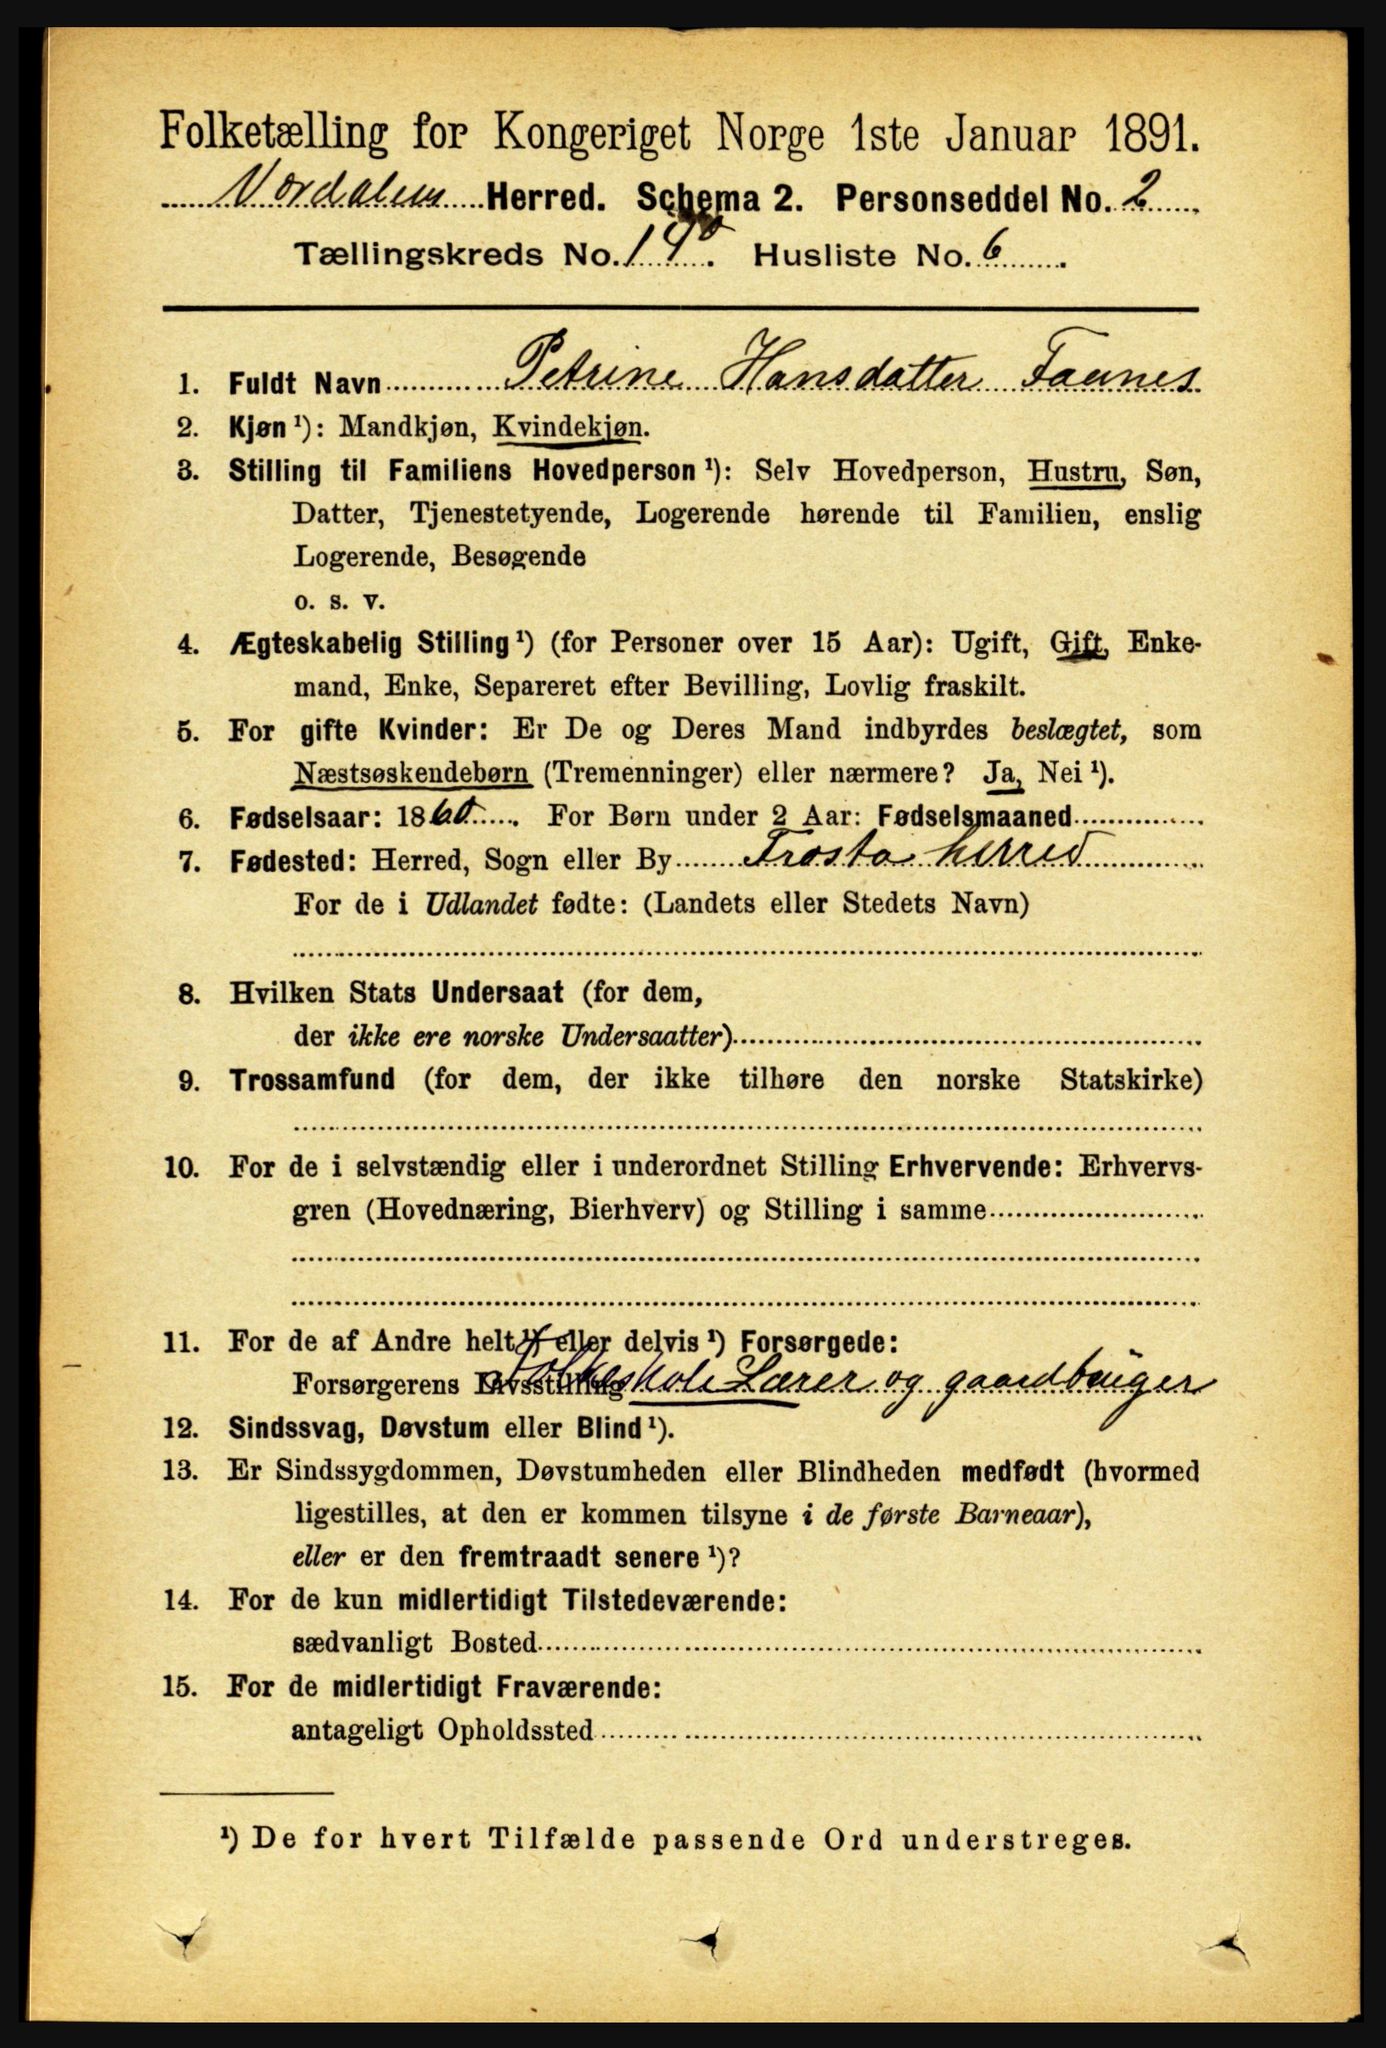 Folketælling for Kongeriget Norge 1ste Januar 1891.
Værdalen Herred. Schema 2. Personseddel No. 2
Tællingskreds No. 14 Husliste No. 6
1. Fuldt Navn Petrine Hansdatter Faanes
2. Kjøn ¹): Mandkjøn, Kvindekjøn.
3. Stilling til Familiens Hovedperson ¹): Selv Hovedperson, Hustru, Søn,
Datter, Tjenestetyende, Logerende hørende til Familien, enslig
Logerende, Besøgende
o. s. v.
4. Ægteskabelig Stilling ¹) (for Personer over 15 Aar): Ugift, Gift, Enke-
mand, Enke, Separeret efter Bevilling, Lovlig fraskilt.
5. For gifte Kvinder: Er De og Deres Mand indbyrdes beslægtet, som
Næstsøskendebørn (Tremenninger) eller nærmere? Ja, Nei ¹).
6. Fødselsaar: 1860. For Børn under 2 Aar: Fødselsmaaned
7. Fødested: Herred, Sogn eller By Frosta herred
For de i Udlandet fødte: (Landets eller Stedets Navn)
8. Hvilken Stats Undersaat (for dem,
der ikke ere norske Undersaatter)
9. Trossamfund (for dem, der ikke tilhøre den norske Statskirke)
10. For de i selvstændig eller i underordnet Stilling Erhvervende: Erhvervs-
gren (Hovednæring, Bierhverv) og Stilling i samme
11. For de af Andre helt ¹) eller delvis ¹) Forsørgede:
Forsørgerens Livsstilling Folkeskole Lærer og gaardbruger
12. Sindssvag, Døvstum eller Blind ¹).
13. Er Sindssygdommen, Døvstumheden eller Blindheden medfødt (hvormed
ligestilles, at den er kommen tilsyne i de første Barneaar),
eller er den fremtraadt senere ¹)?
14. For de kun midlertidigt Tilstedeværende:
sædvanligt Bosted
15. For de midlertidigt Fraværende:
antageligt Opholdssted
¹) De for hvert Tilfælde passende Ord understreges.